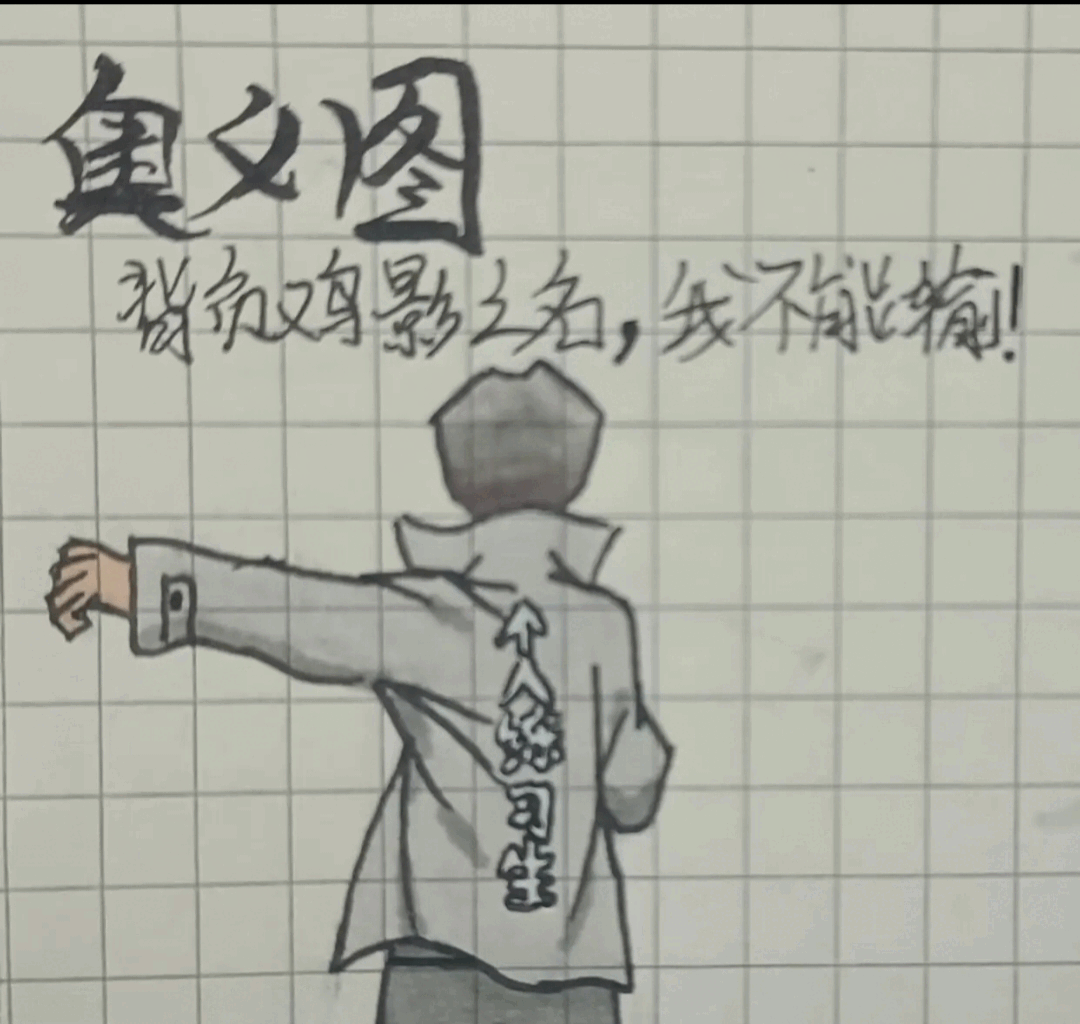 奥义图
背负鸡影之名，我不能输！
个人练习生